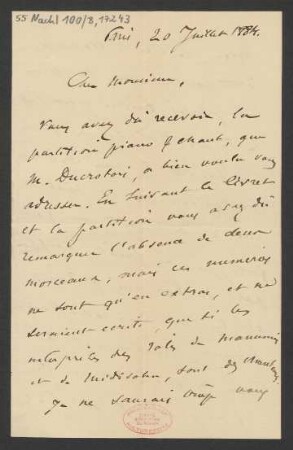 55 Nachl 100/B, 19243
20 Juillet 1884.
Cher Monsieur,
Vous avez dû recevoir, la
partition piano & chant, que
M. Ducrotois, a bien voulu vous
adresser. En suivant le livret
et la partition vous avez dû
remarquer l'absence de deux
morceaux, mais ces numéros
ne sont qu'en extras, et ne
seraient écrits, que si les
interprètes des rôles de
et de sont des
Je ne saurais trop vous